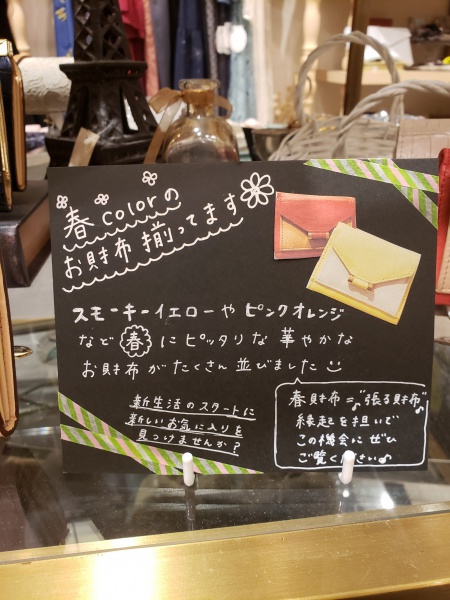 春colorの
お財布揃ってます
スモーキーイエローや ピンクオレンジ
など 春 に ピッタリな 華やかな
お財布が たくさん 並びました
新生活のスタートに
新しいお気に入りを
見つけませんか?
春財布=♪張る財布♪
縁起を担いで
この機会に ぜひ
ご覧ください♪